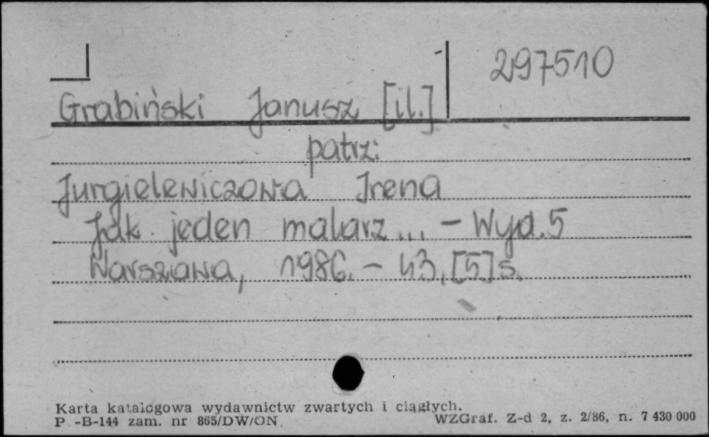 297510
Grabiński Janusz [il.]
patrz:
Jurgielewiczowa Irena
Jak jeden malarz... – Wyd. 5
Warszawa, 1986. – 43, [5] s.
Karta katalogowa wydawnictw zwartych i ciągłych.
P -B-144 zam. nr 865/DW/ON WZGraf. Z-d 2, z. 2/86, n. 7 430 000